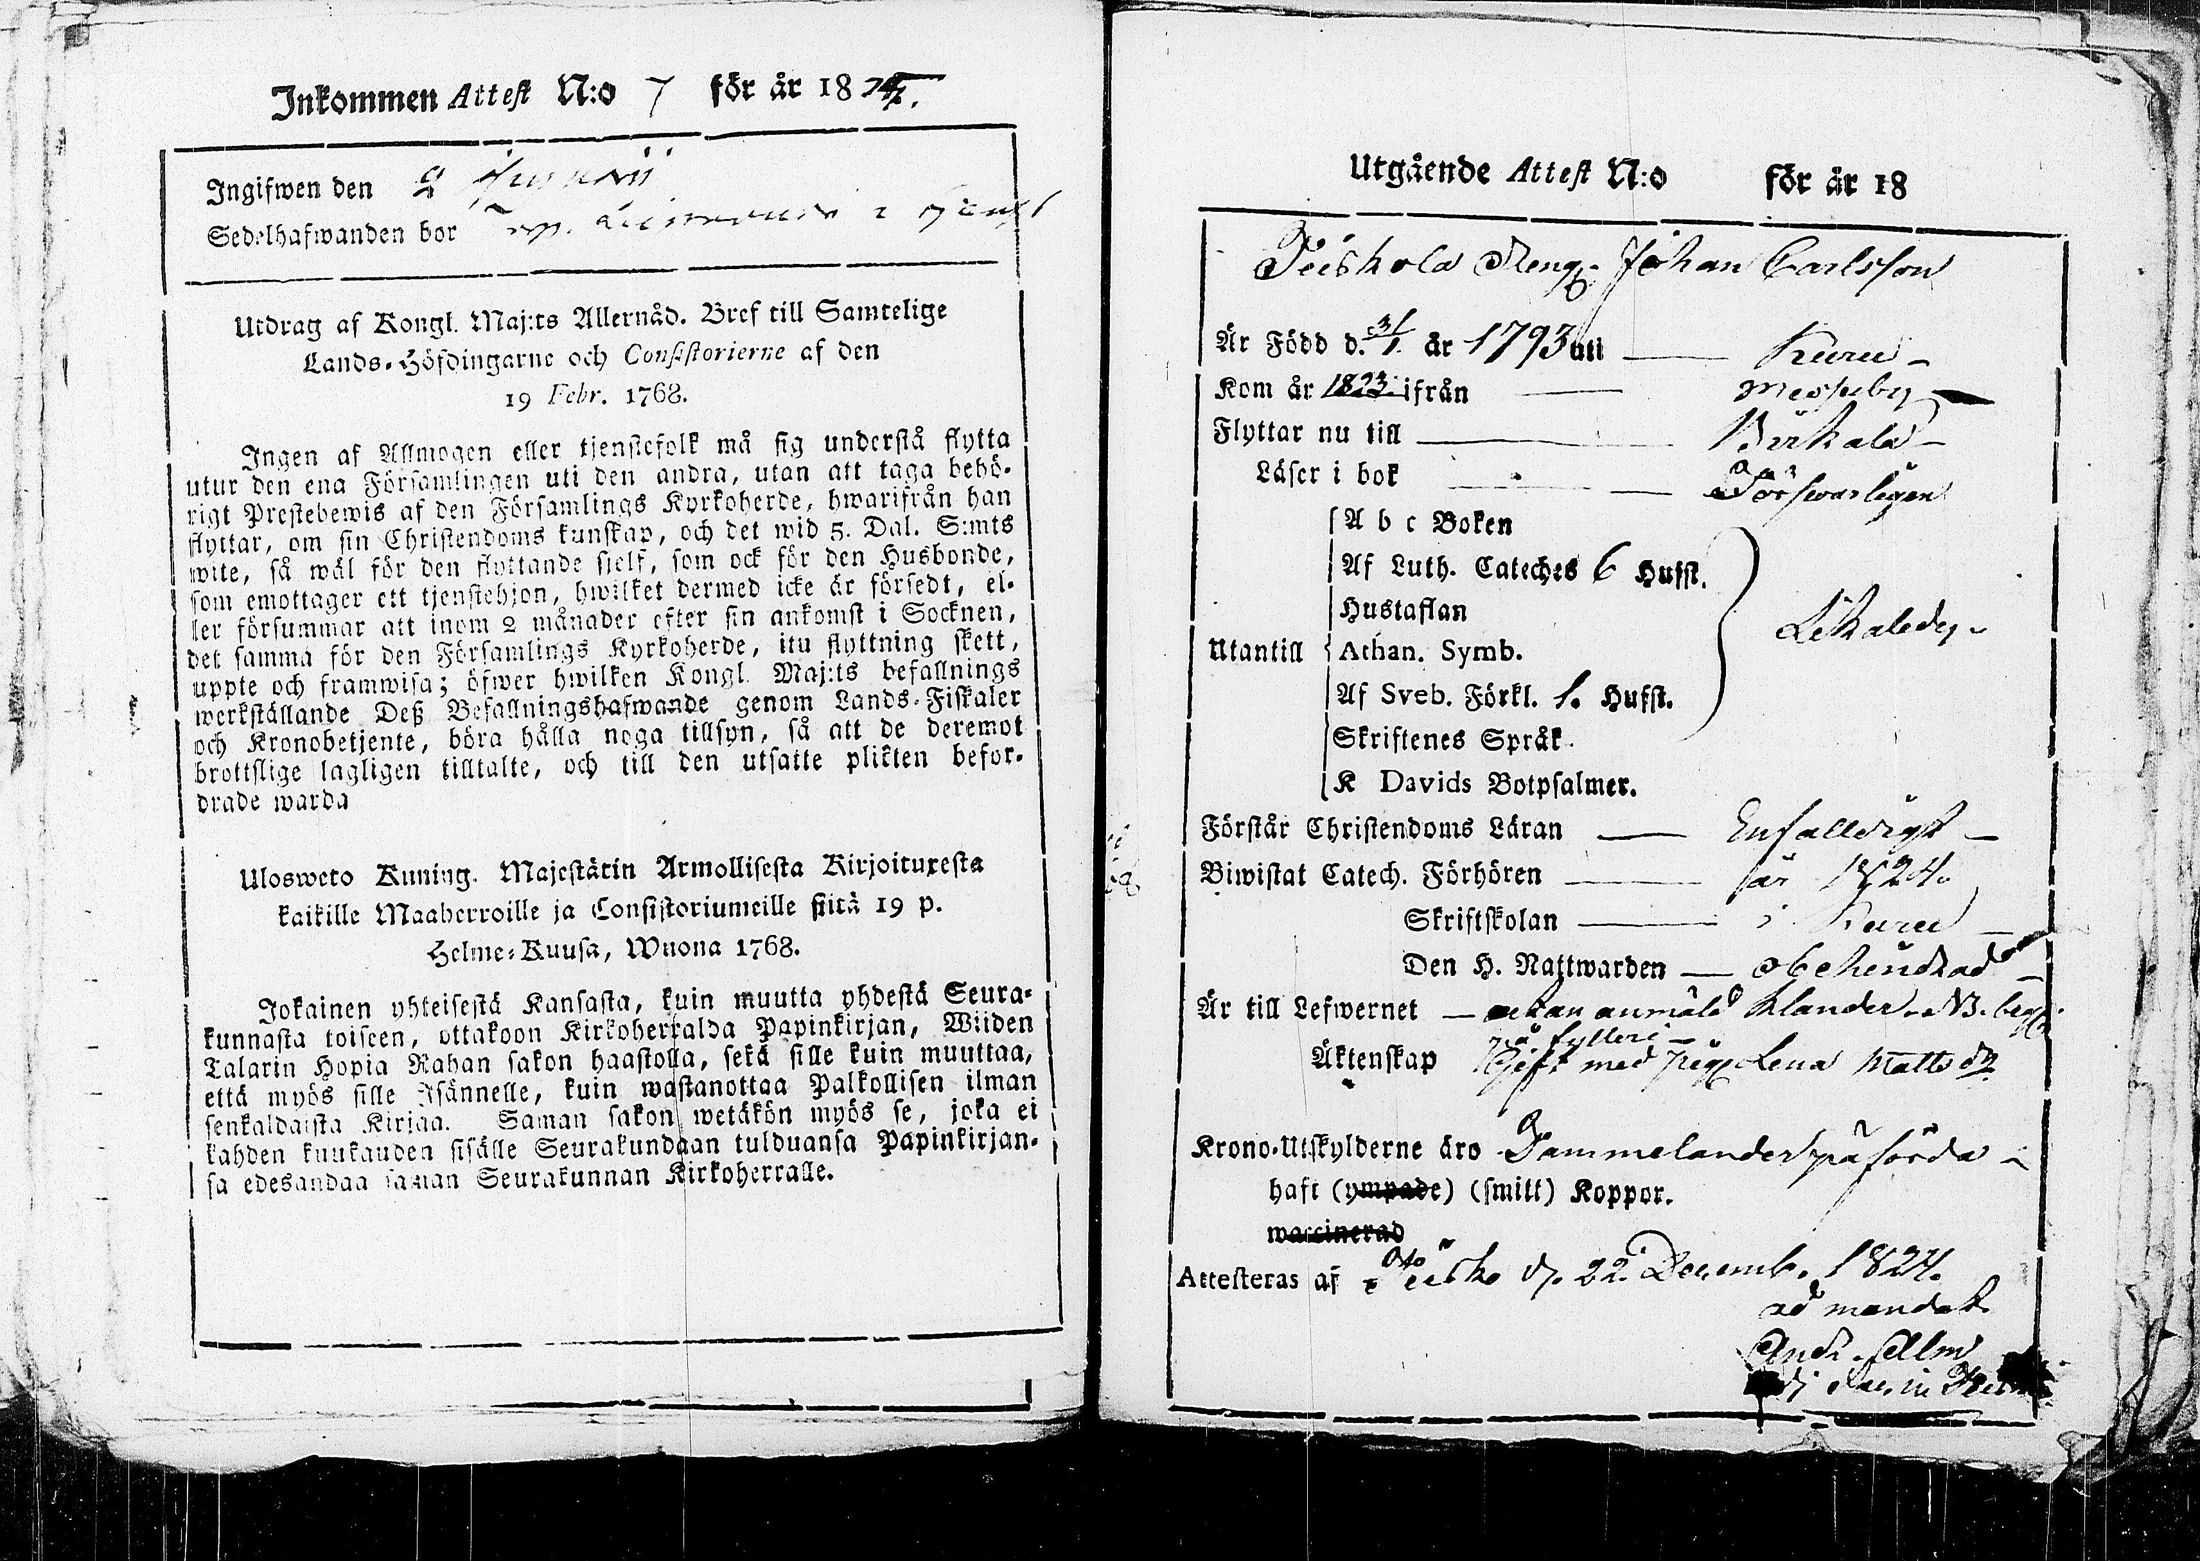 Inkommen Attest N:o 7 för år 18
Ingifwen den 9
Sedelhafwanden bor
Utdrag af Kongl. Maj:ts Allernåd. Bref till Samtelige
Lands-Höfdingarne och Consistorierne af den
19 Febr. 1768.
Ingen af Allmogen eller tjenstefolk må sig understå flytta
utur den ena Församlingen uti den andra, utan att taga behö-
rigt Prestebewis af den Församlings Kyrkoherde, hwarifrån han
flyttar, om sin Christendoms kunskap, och det wid 5. Dal. S:mts
wite, så wäl för den flyttande sjelf, som ock för den Husbonde,
som emottager ett tjenstehjon, hwilket dermed icke är försedt, el-
ler försummar att inom 2 månader efter sin ankomst i Socknen,
det samma för den Församlings Kyrkoherde, itu flyttning skett,
uppte och framwisa; öfwer hwilken Kongl. Maj:ts befallnings
werkställande Deß Befallningshafwande genom Lands-Fiskaler
och Kronobetjente, böra hålla noga tillsyn, så att de deremot
brottslige lagligen tilltalte, och till den utsatte plikten befor-
drade warda
Ulosweto Kuning. Majestätin Armollisesta Kirjoituxesta
kaikille Maaherroille ja Consistoriumeille siitä 19 p.
Helme-Kuusa, Wuona 1768.
Jokainen yhteisestä Kansasta, kuin muutta yhdestä Seura-
kunnasta toiseen, ottakoon Kirkoherralda Papinkirjan, Wiiden
Talarin Hopia Rahan sakon haastolla, sekä sille kuin muuttaa,
että myös sille Isännelle, kuin wastanottaa Palkollisen ilman
senkaldaista Kirjaa. Saman sakon wetäkön myös se, joka ei
kahden kuukauden sisälle Seurakundaan tulduansa Papinkirjan-
sa edesandaa saman Seurakunnan Kirkoherralle.
Utgående Attest N:o för år 18
Teiskola Dreng. Johan Carlsson
Är Född d. 3/1. år 1793 uti Kuru
Kom år 1823 ifrån Messuby
Flyttar nu till Birkala
Läser i bok Försvarligen
A b c Boken
Af Luth. Cateches 6 Hufst.
Hustaflan
Utantill Athan. Symb. Likaledes
Af Sveb. Förkl. 1. Hufst.
Skriftenes Språk
K Davids Botpsalmer.
Förstår Christendoms Läran Enfalldigt
Biwistat Catech. Förhören år 1824.
Skriftskolan i Kuru
Den H. Nattwarden obehindrad
Är till Lefwernet utan anmäld klander. NB. beg.
på fylleri
Äktenskap Gift med pig. Lena Mattsdr
Krono-Utskylderne äro Jammelander påförda
haft (ympade) (smitt) Koppor.
waccinerad
Attesteras af Teisko d. 22. Decemb. 1824.
ad mandat.
Andr. Alm